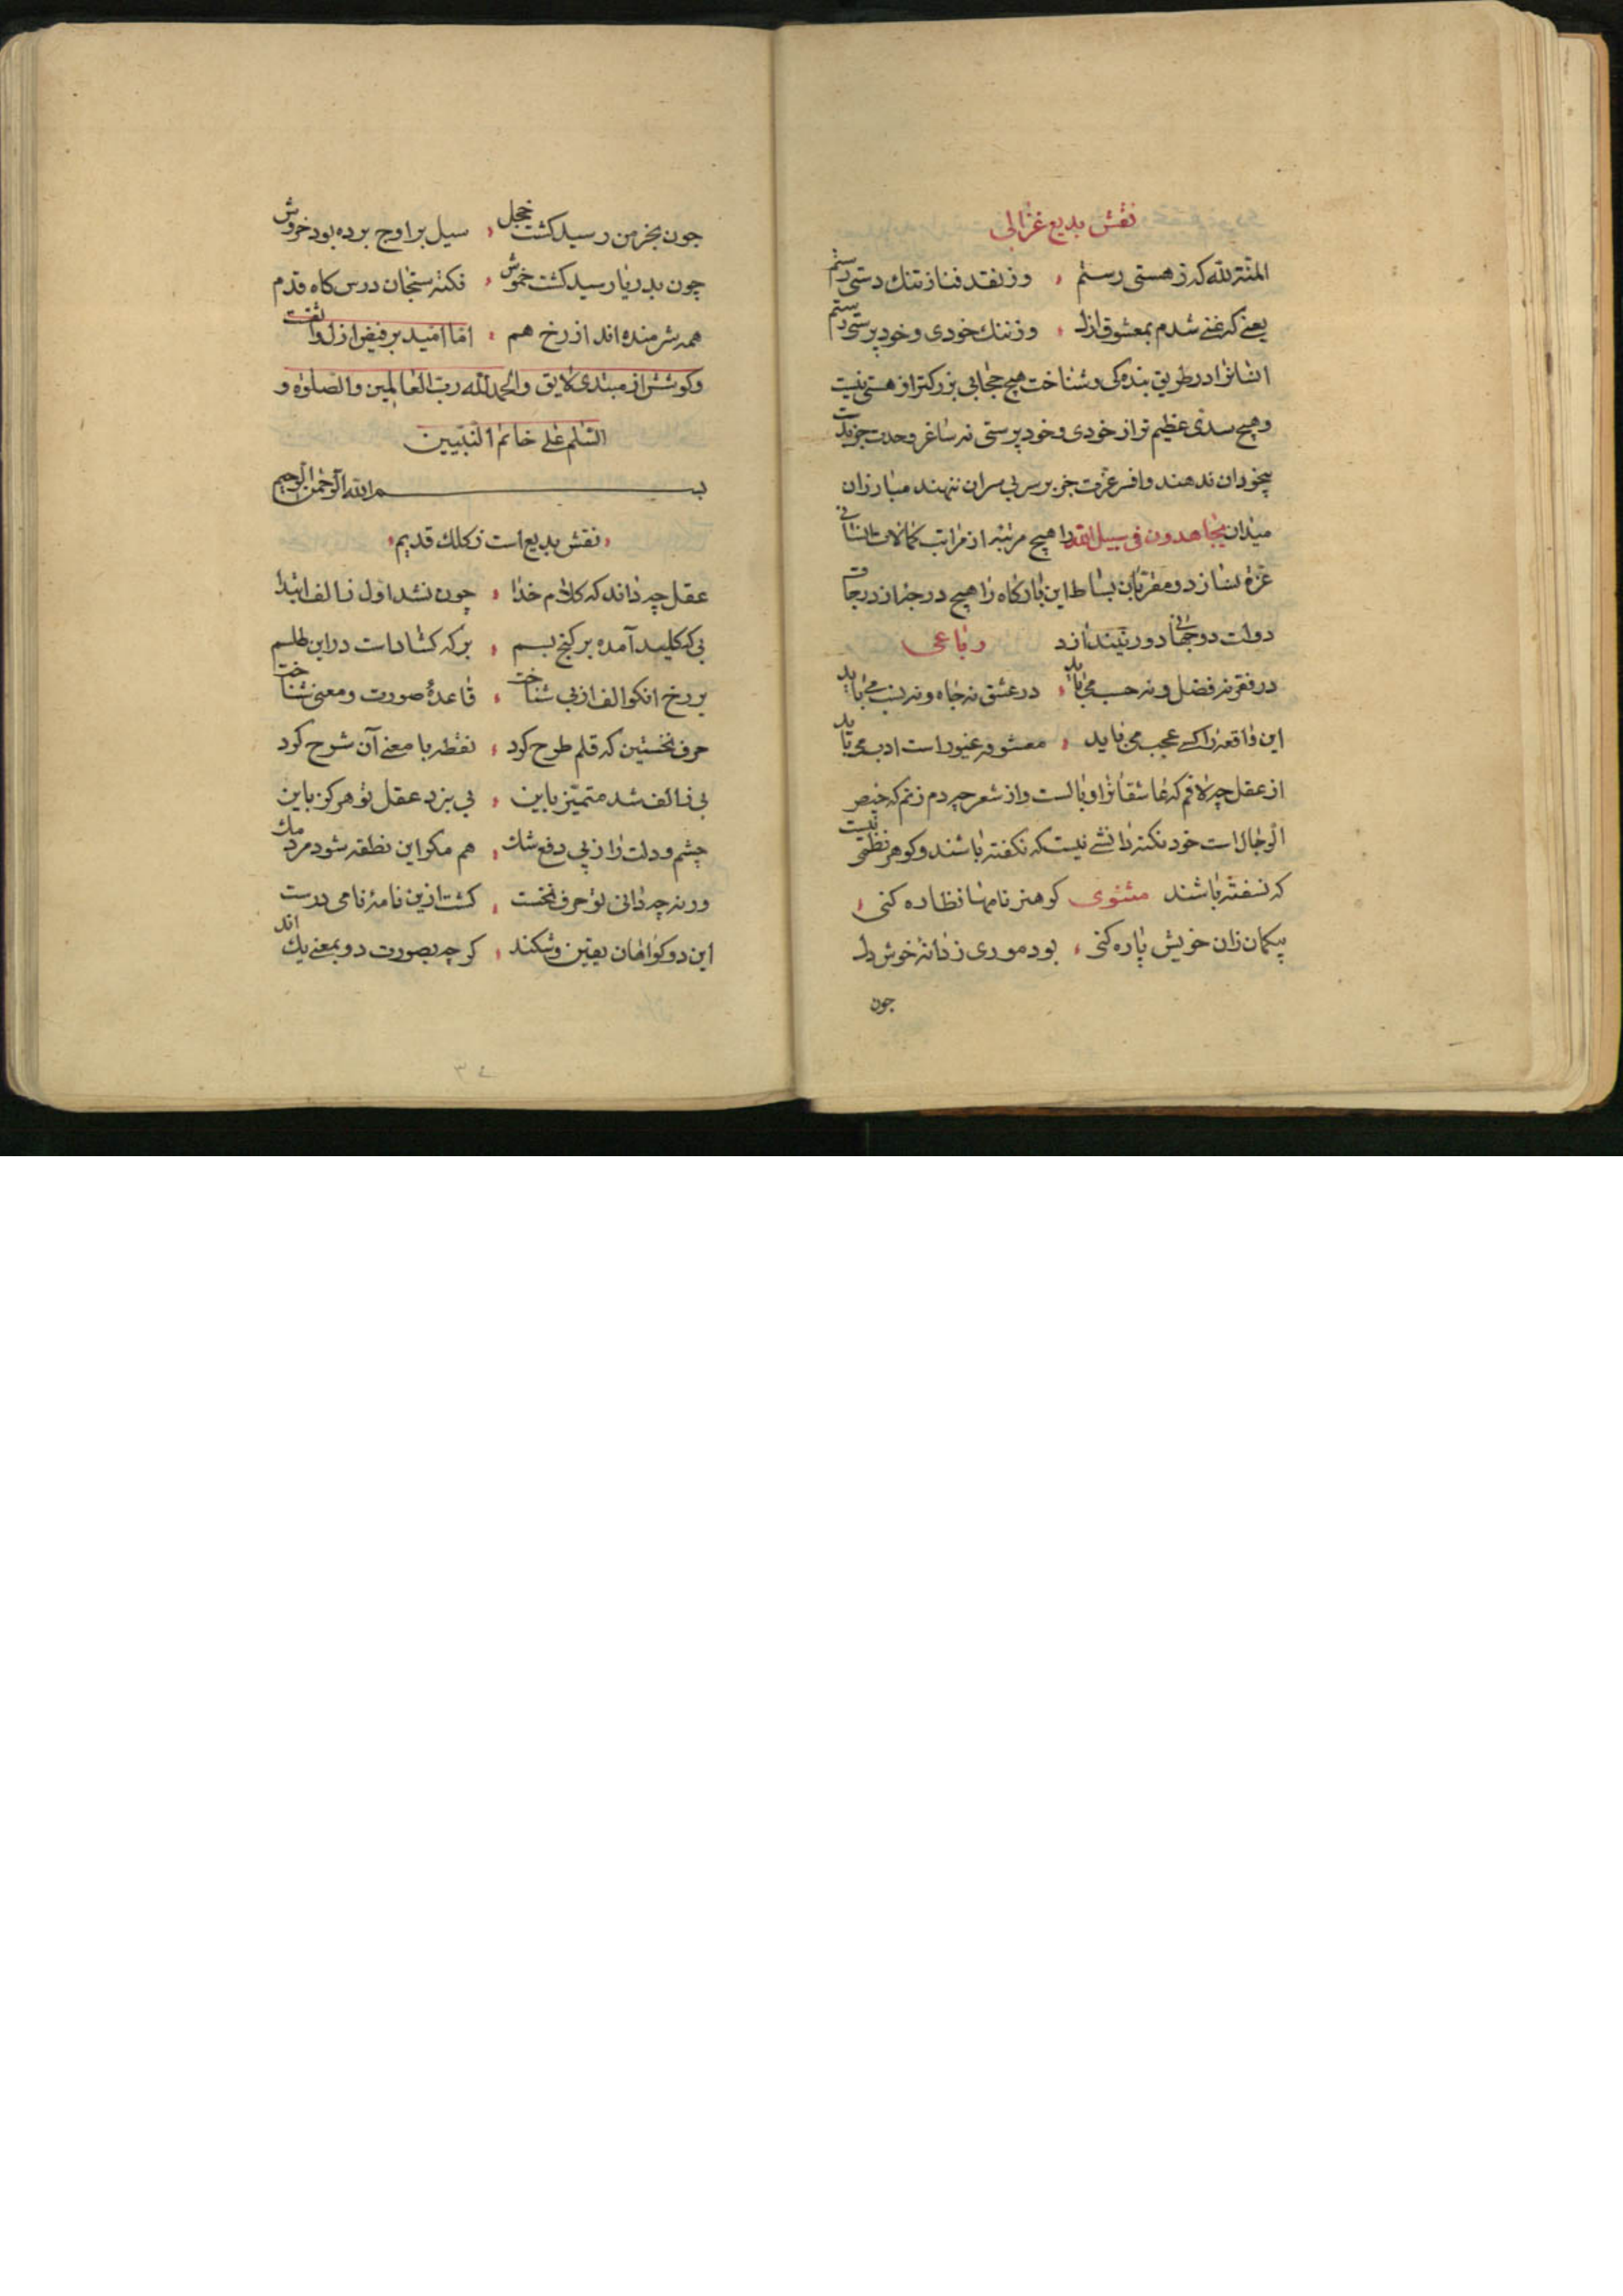 نقش بدیع غزالی
المنة لله که ز هستی رستم وز نقد فنا ز تنک دستی رستم
یعنی که غنی شدم بمعشوق ازل وز ننک خودی و خود پرستی رستم
انسانرا در طریق بنده کی و شناخت هیچ حجابی بزرکتر از هستی نیست
و هیچ سدی عظیم تر از خودی و خود پرستی نه ساغر وحدت جز بدست
بیخودان ندهند و افسر عزت جز بر سر بی سران ننهند مبارزان
میدان یجاهدون فی سبیل الله را هیچ مرتبه از مراتب کمالات انسانی
غره نسازد و مقربان بساط این بارکاه را هیچ درجه از درجات
دولت دو جهانی دور نیندازد رباعی
در فقر نه فضل و نه حسب می باید در عشق نه جاه و نه نسب می باید
این واقعه را کسی عجب می باید معشوقه غیور است ادب می باید
از عقل چه لافم که عاشقانرا وبالست و از شعر چه دم زنم که حیض
الرجال است خود نکته دانشی نیست که نکفته باشند و کوهر نظمی نیست
که نسفته باشند مثنوی کو هنر نامها نظاره کنی
بیکمان زان خویش پاره کنی بود موری ز دانه خوش دل
چون
چون بخرمن رسید کشت خجل سیل بر اوج برده بود خروش
چون بدریا رسید کشت خموش نکته سنجان درس کاه قدم
همه شرمنده اند از رخ هم اما امید بر فیض ازل واثقست
و کوشش از مبتدی لایق و الحمد لله رب العالمین و الصلوة و
السلم علی خاتم النبیین
بسم الله الرحمن الرحیم
نقش بدیع است ز کلک قدیم
عقل چه داند که کلام خدا چون نشد اول ز الف ابتدا
بی که کلید آمده بر کنج بسم بر که کشادست در این طلسم
بر رخ انکو الف از بی شناخت قاعدهٔ صورت و معنی شناخت
حرف نخستین که قلم طرح کرد نقطه با معنی آن شرح کرد
بی ز الف شد متمیز باین بی نبرد عقل تو هرکز باین
چشم و دلت را ز پی دفع شک هم مکو این نطقه شود مردمک
ورنه چه دانی تو حرف نخست کشت ازین نامهٔ نامی درست
این دو کواهان یقین و شکند کرچه بصورت دو بمعنی یک اند
۳۴